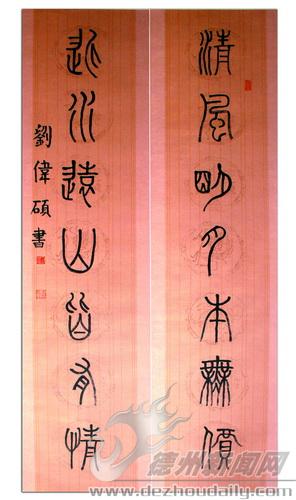 清風明月本無價
近水遠山皆有情
劉偉碩書
德州新闻网
www.dezhoudaily.com